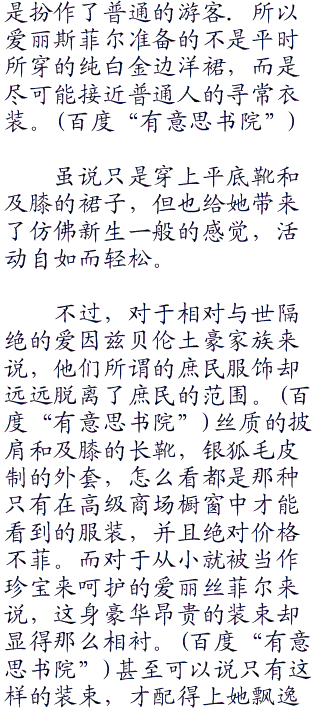 是扮作了普通的游客．所以
爱丽斯菲尔准备的不是平时
所穿的纯白金边洋裙，而是
尽可能接近普通人的寻常衣
装。(百度“有意思书院”)
虽说只是穿上平底靴和
及膝的裙子，但也给她带来
了仿佛新生一般的感觉，活
动自如而轻松。
不过，对于相对与世隔
绝的爱因兹贝伦土豪家族来
说，他们所谓的庶民服饰却
远远脱离了庶民的范围。(百
度“有意思书院”)丝质的披
肩和及膝的长靴，银狐毛皮
制的外套，怎么看都是那种
只有在高级商场橱窗中才能
看到的服装，并且绝对价格
不菲。而对于从小就被当作
珍宝来呵护的爱丽丝菲尔来
说，这身豪华昂贵的装束却
显得那么相衬。(百度“有意
思书院”)甚至可以说只有这
样的装束，才配得上她飘逸